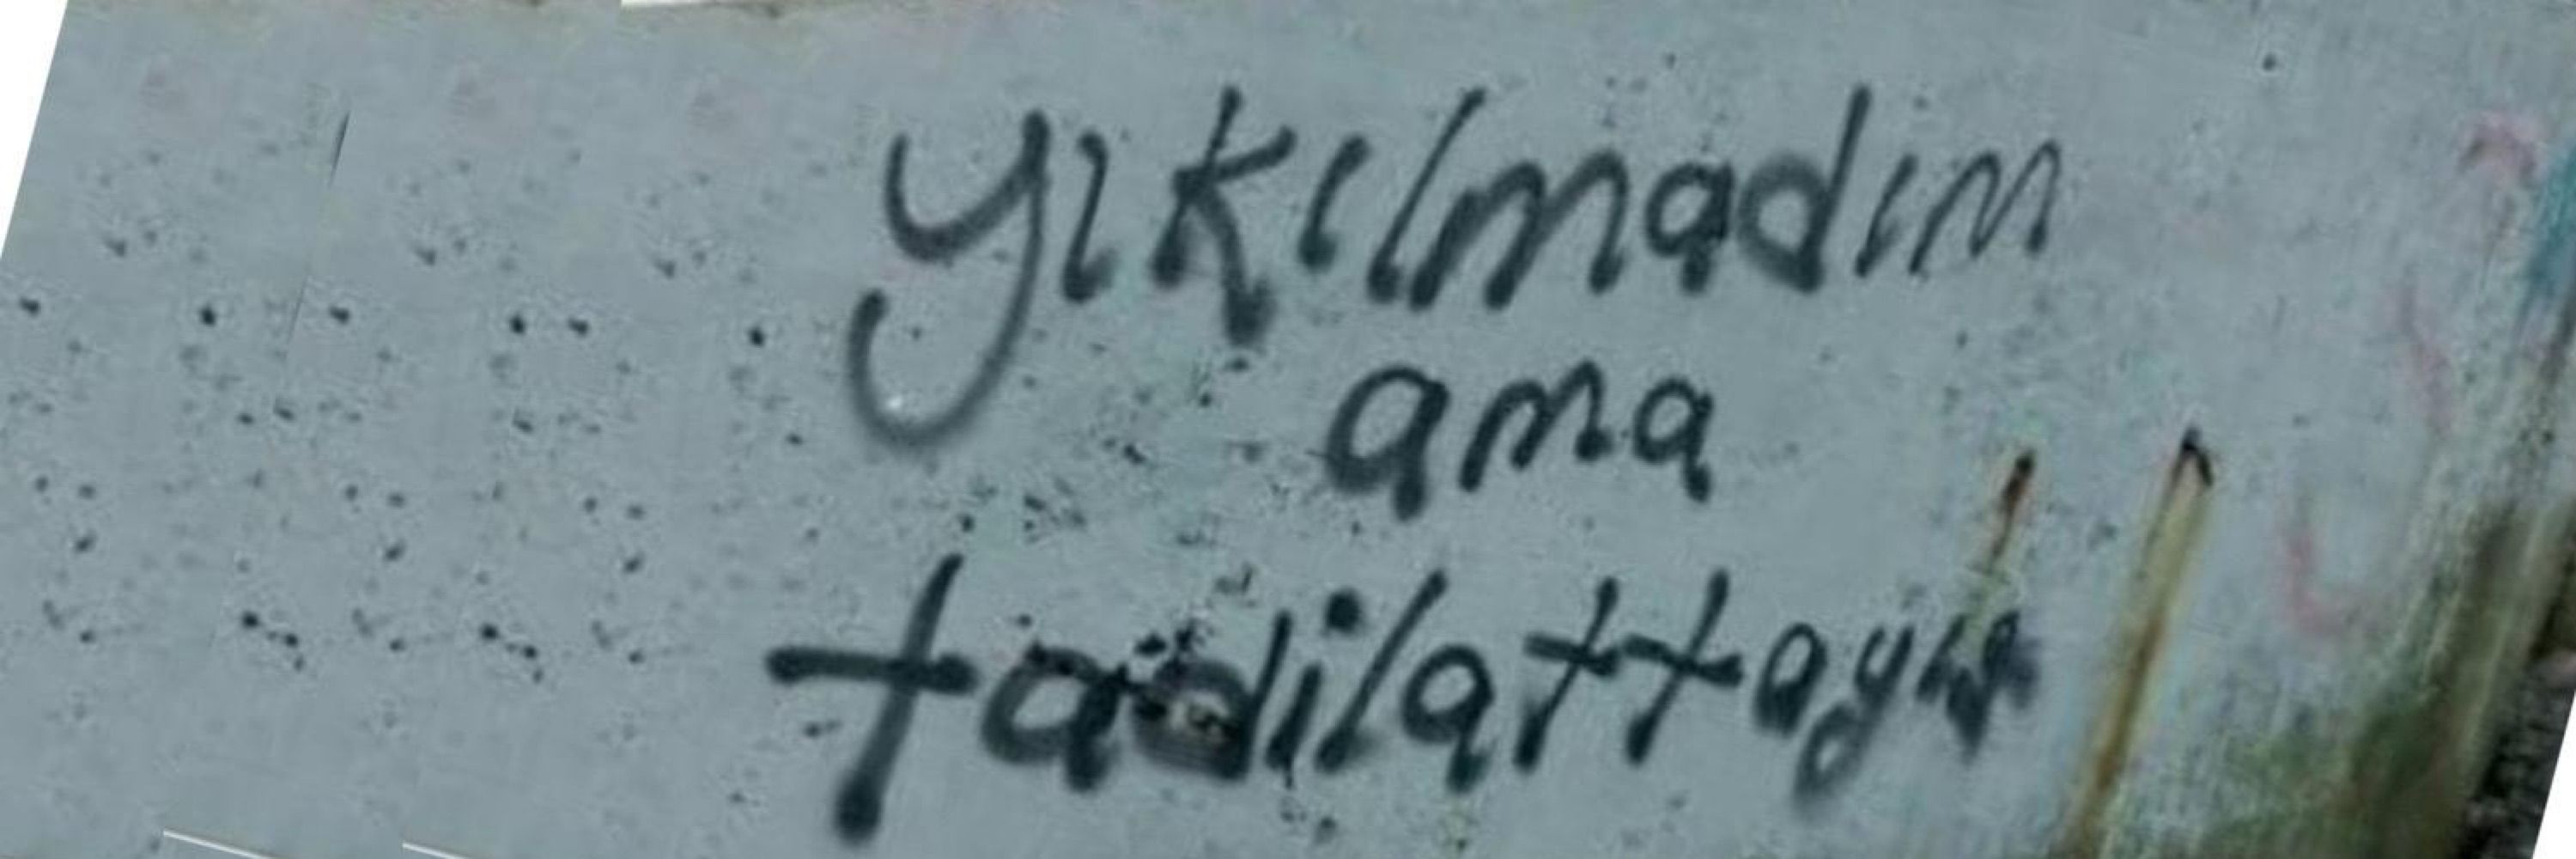 yıkılmadım
ama
tadilattayım